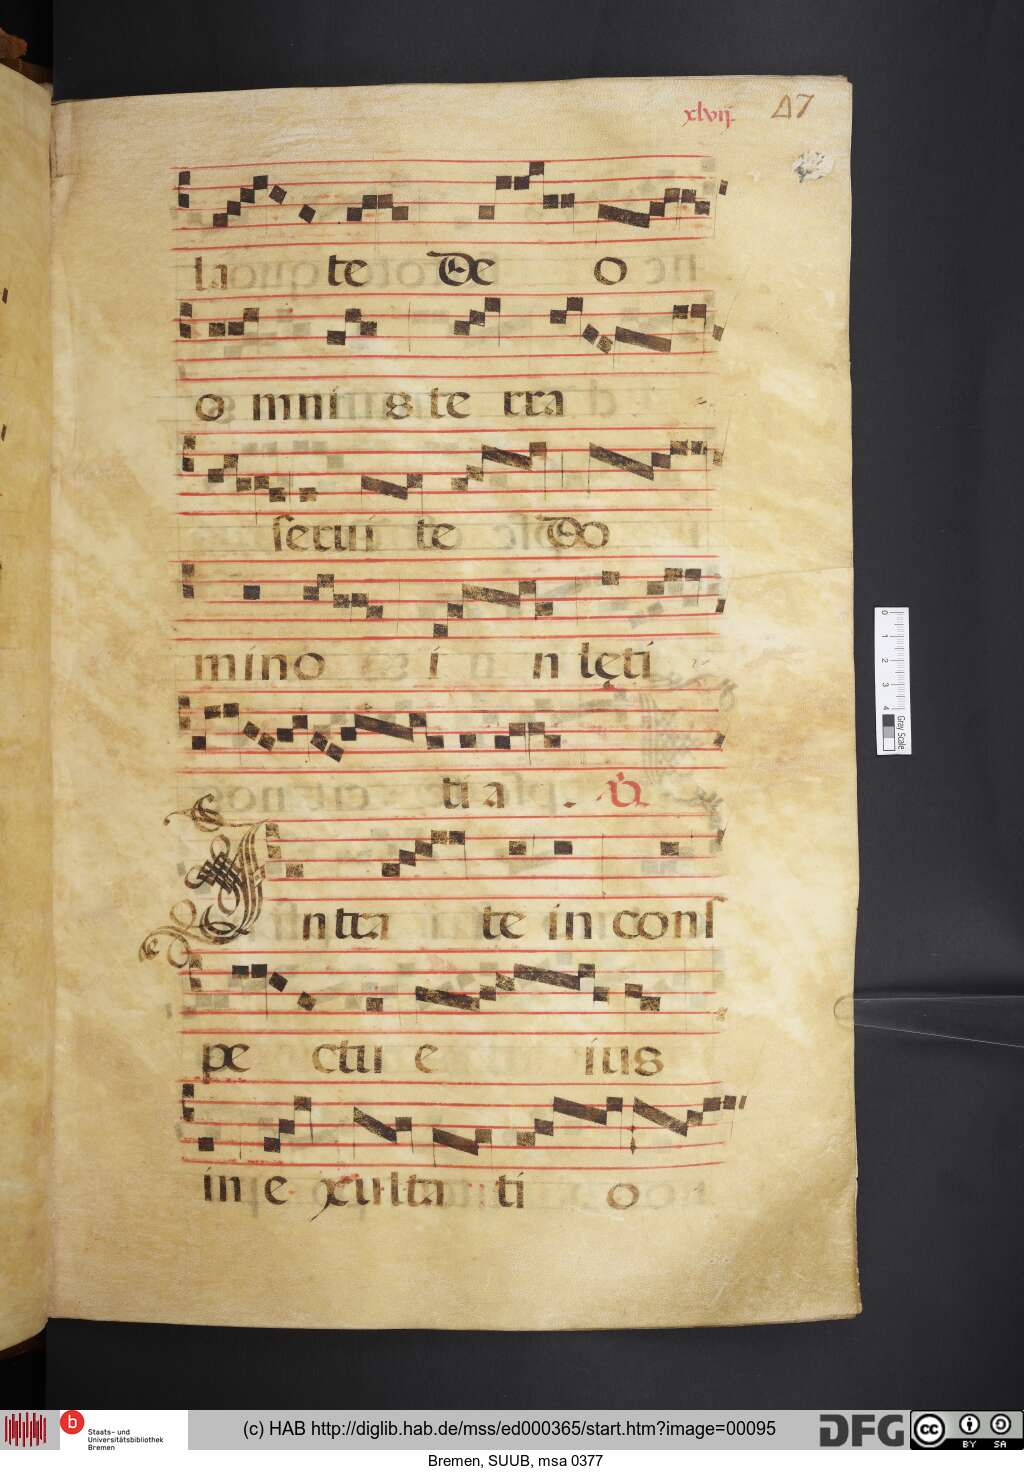 xlvij. 47
la te De o
omnis te rra
serui te Do
mino i n lęti
ti a . V
Intra te in cons
pe ctu e ius
in e xulta ti o
0 1 2 3 4 Gray Scale
b Staats- und Universitätsbibliothek Bremen
(c) HAB http://diglib.hab.de/mss/ed000365/start.htm?image=00095
DFG cc BY SA
Bremen, SUUB, msa 0377